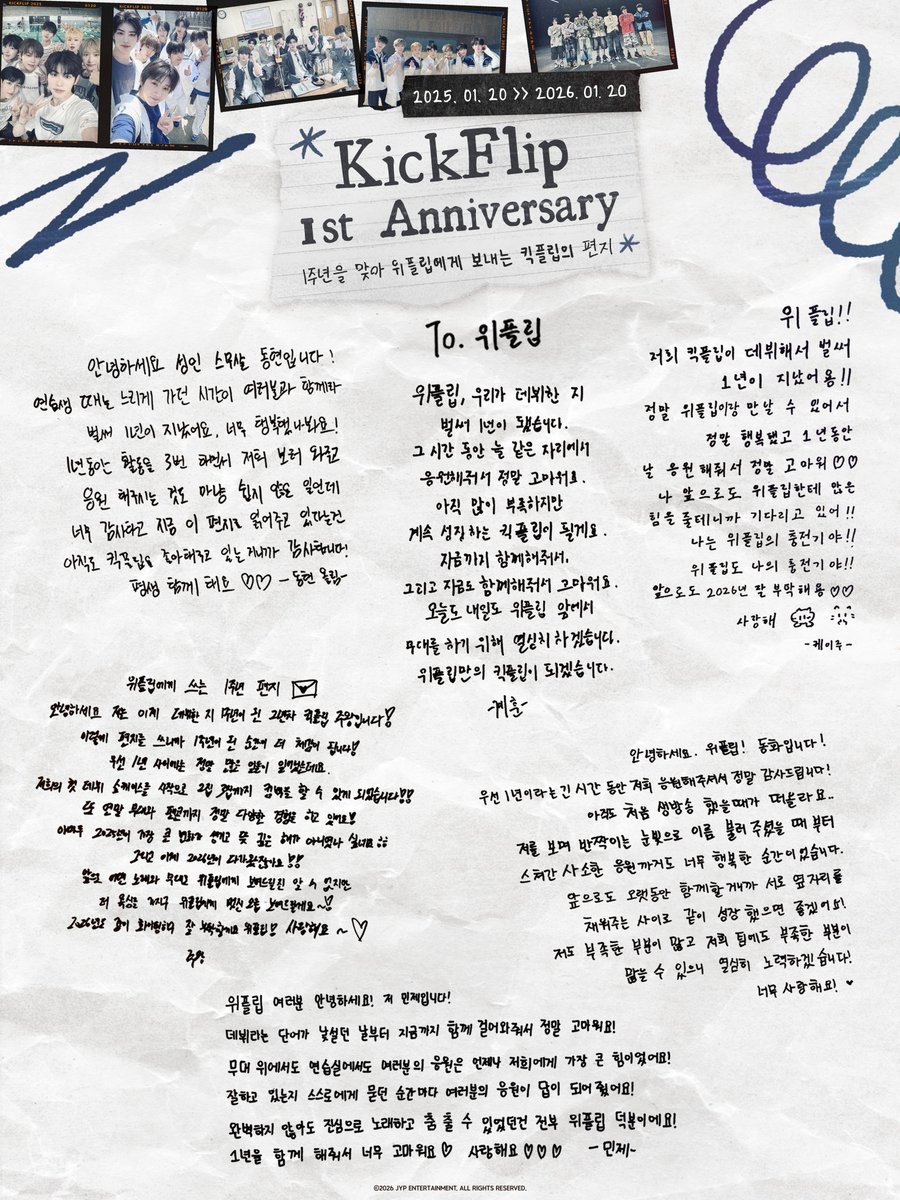 KICKFLIP 2025 0120
KICKFLIP 2025 0120
2025. 01. 20 >> 2026. 01. 20
KickFlip
1st Anniversary
1주년을 맞아 위플립에게 보내는 킥플립의 편지
안녕하세요 성인 스무살 동현입니다!
연습생 때는 느리게 가던 시간이 여러분과 함께라
벌써 1년이 지났어요, 너무 행복했나봐요!
1년동안 활동을 3번 하면서 저희 보러 와주고
응원 해주시는 것도 마냥 쉽지 않은 일인데
너무 감사하고 지금 이 편지도 읽어주고 있다는건
아직도 킥플립을 좋아해주고 있는거니까 감사합니다!
평생 함께 해요 ♡♡ -동현 올림-
To. 위플립
위플립, 우리가 데뷔한 지
벌써 1년이 됐습니다.
그 시간 동안 늘 같은 자리에서
응원해줘서 정말 고마워요.
아직 많이 부족하지만
계속 성장하는 킥플립이 될게요.
지금까지 함께해줘서,
그리고 지금도 함께해줘서 고마워요.
오늘도 내일도 위플립 앞에서
무대를 하기 위해 열심히 하겠습니다.
위플립만의 킥플립이 되겠습니다.
-계훈-
위플립!!
저희 킥플립이 데뷔해서 벌써
1년이 지났어용!!
정말 위플립이랑 만날 수 있어서
정말 행복했고 1년동안
날 응원해줘서 정말 고마워♡♡
나 앞으로도 위플립한테 많은
힘을 줄테니까 기다리고 있어!!
나는 위플립의 충전기야!!
위플립도 나의 충전기야!!
앞으로도 2026년 잘 부탁해용♡♡
사랑해
-케이주-
위플립에게 쓰는 1주년 편지
안녕하세요 저는 이제 데뷔한 지 1주년이 된 2년차 킥플립 주왕입니다!
이렇게 편지를 쓰니까 1주년이 된 순간이 더 체감이 됩니다!
우선 1년 사이에는 정말 많은 일들이 있었는데요.
저희의 첫 데뷔 쇼케이스를 시작으로 2집 3집까지 컴백을 할 수 있게 되었습니다!!
또 연말 무대와 팬콘까지 정말 다양한 경험을 하고 있어요!
2025년이 가장 큰 변화가 생기고 뜻 깊은 해가 아니었나 싶네요
그리고 이제 2026년이 다가왔잖아요!!
앞으로 어떤 노래와 무대로 위플립에게 보여드릴진 알 수 없지만
더 욕심을 가지구 위플립에게 멋진 모습 보여드릴게요~!
2026년도 같이 화이팅하고 잘 부탁해요 위플립! 사랑해요~♡
안녕하세요. 위플립! 동화입니다!
우선 1년이라는 긴 시간 동안 저희 응원해주셔서 정말 감사드립니다!
아직도 처음 생방송 했을때가 떠올라요..
저를 보며 반짝이는 눈빛으로 이름 불러 주셨을 때 부터
스쳐간 사소한 응원까지도 너무 행복한 순간이었습니다.
앞으로도 오랫동안 함께할거니까 서로 옆자리를
채워주는 사이로 같이 성장했으면 좋겠어요!
저도 부족한 부분이 많고 저희 팀에도 부족한 부분이
많을 수 있으니 열심히 노력하겠습니다!
너무 사랑해요! ♥
위플립 여러분 안녕하세요! 저 민제입니다!
데뷔라는 단어가 낯설던 날부터 지금까지 함께 걸어와줘서 정말 고마워요!
무대 위에서도 연습실에서도 여러분의 응원은 언제나 저희에게 가장 큰 힘이었어요!
잘하고 있는지 스스로에게 묻던 순간마다 여러분의 응원이 답이 되어줬어요!
완벽하지 않아도 진심으로 노래하고 춤 출 수 있었던건 전부 위플립 덕분이에요!
1년을 함께 해줘서 너무 고마워요♡ 사랑해요♡♡♡ -민제-
©2026 JYP ENTERTAINMENT. ALL RIGHTS RESERVED.